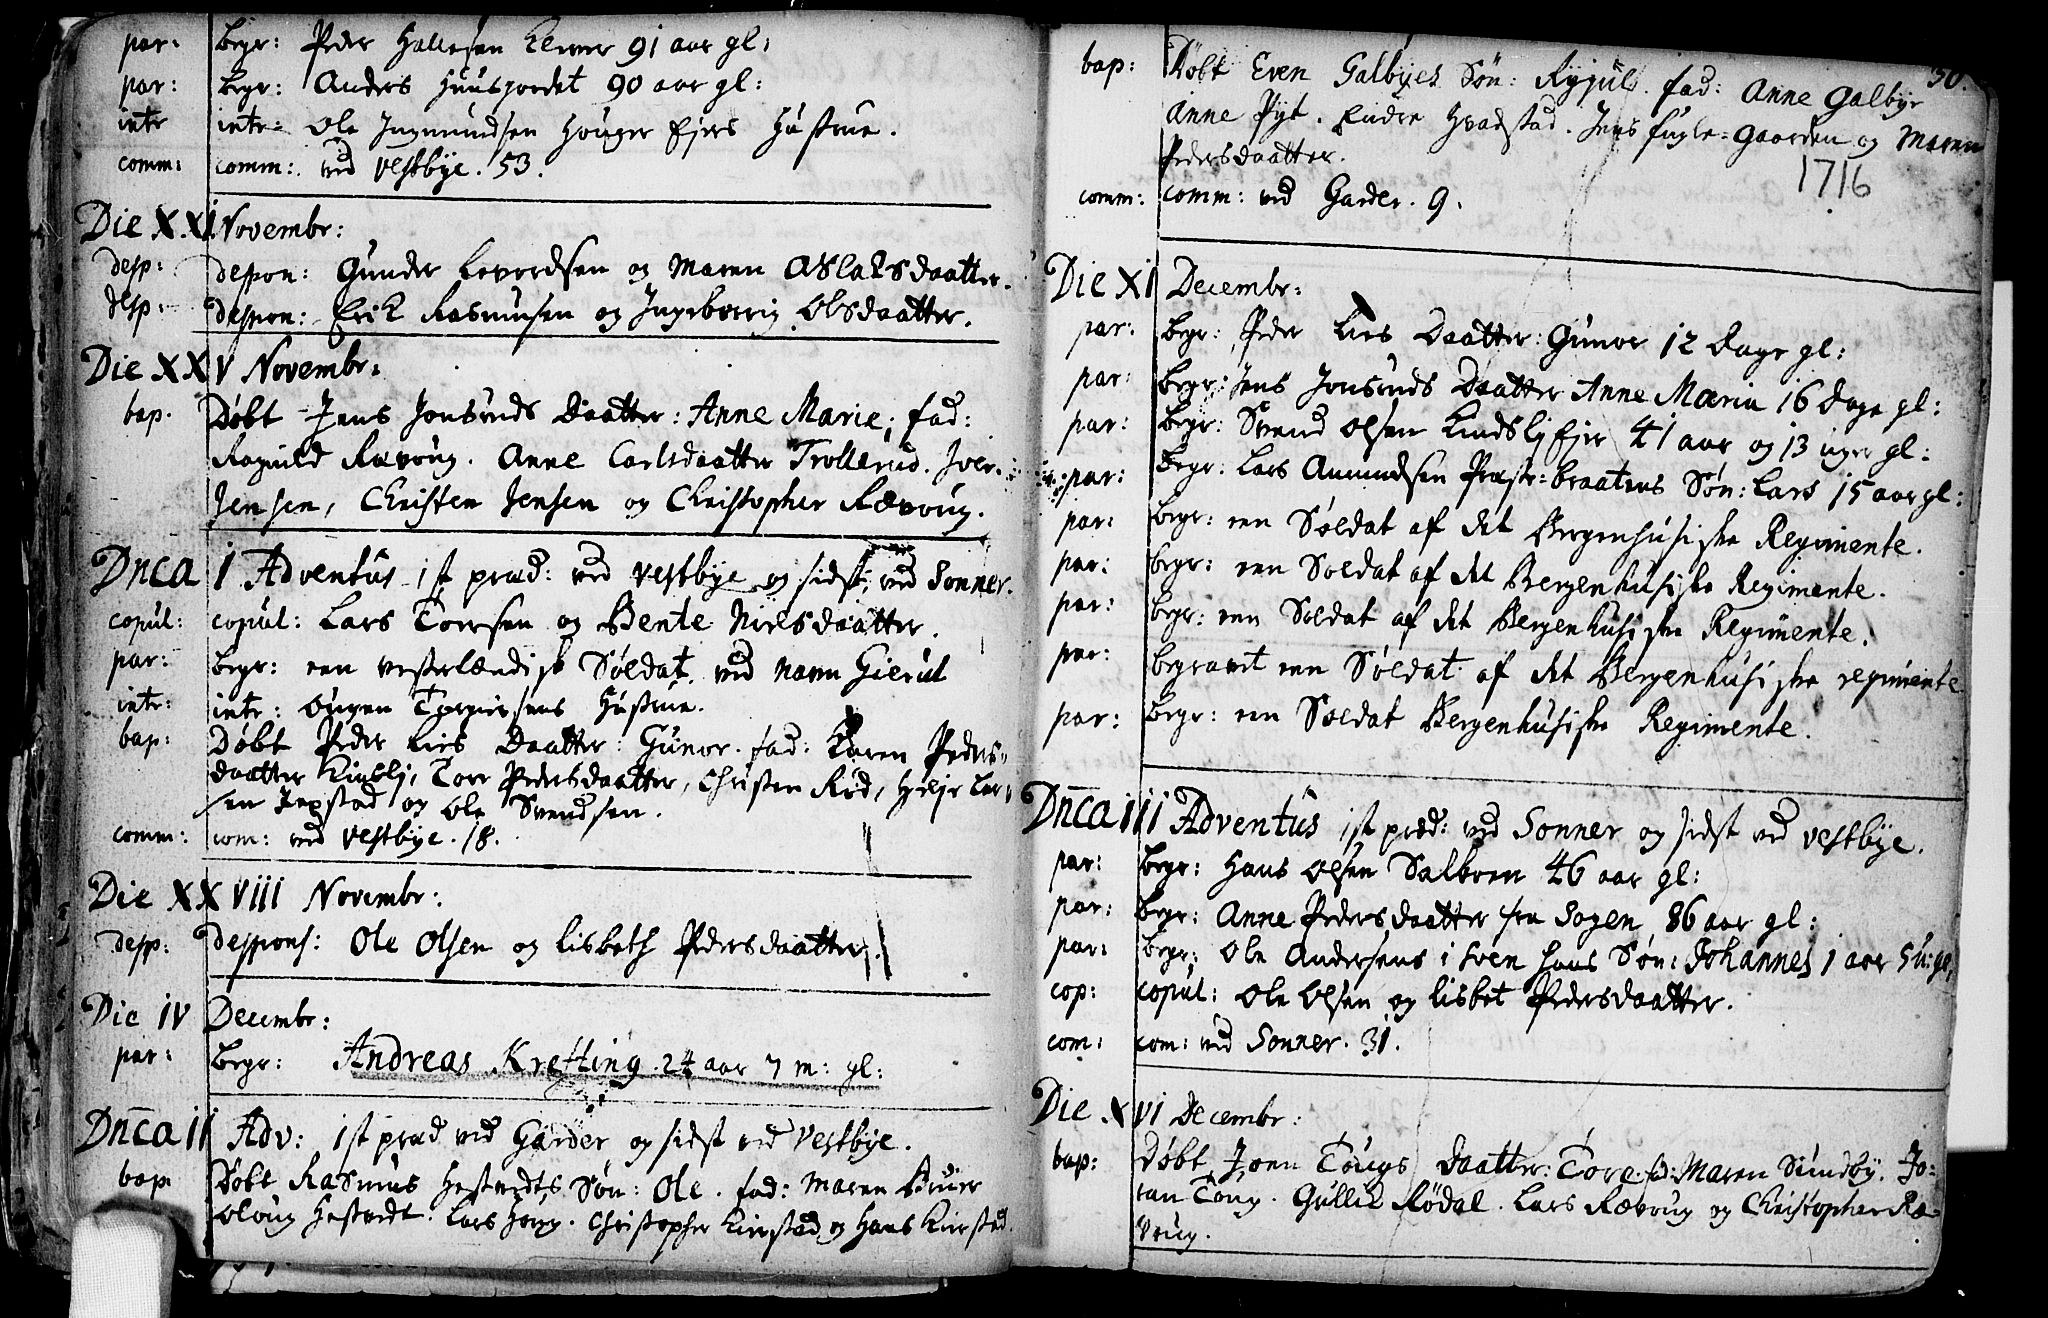 par: begr: Peder Hallesen Klever 91 aar gl:
par: begr: Anders Huusjordet 90 aar gl:
intr intr: Ole Ingmundsen Houger Ejers Hustrue.
comm: comm: ved Vestbÿe. 53.
Die XXI Novembr:
desp: despon: Gunder Levordsen og Maren Aslaksdaatter.
desp: despon: Erik Rasmusen og Ingeborrig Olsdaatter.
Die XXV Novembr:
bap. Døbt Jens Jonsruds Daatter: Anne Marie; fad:
Ragnild Rævoug. Anne Carlsdaatter Trollerud. Iver
Jensen, Christen Jensen og Christopher Rævoug.
Dnca I Adventus 1st præd: ved Vestbÿe og sidst ved Sonner.
copul: copul: Lars Torrsen og Bente Nielsdaatter.
par: begr: een vesterlændisk Soldat, ved navn Gierul
intr: intr: Ougen Torgiersens Hustrue.
bap: Døbt Peder Lies Daatter: Gunor. fad: Karen Peders-
daatter Kinslj, Torr Pedersdaatter, Christen Rød, Helje Lar-
sen Jepstad og Ole Svendsen.
comm: com: ved Vestbÿe. 18.
Die XXVIII Novembr:
desp: despons: Ole Olsen og Lisbeth Pedersdaatter.
Die IV Decembr:
par: begr: Andreas Krefting 24 aar 7 m: gl:
Dnca II Adv: 1st præd ved Garder og sidst ved Vestbÿe.
bap Døbt Rasmus Hestvedts Søn: Ole. fad: Maren Bruer
Oloug Hestvedt. Lars Horn. Christopher Kirrstad og Hans Kirrstad.
50.
bap: Døbt Even Galbÿes Søn: Rejul. fad: Anne Galbye
Anne Pÿt. Endre Hvadstad. Jens fugle-gaarden og Maren
Pedersdaatter.
1716
comm: comm: ved Garder. 9.
Die XI Decembr:
par: begr: Peder Lies Daatter: Gunor 12 dage gl:
par: begr: Jens Jonsruds Daatter Anne Maria 16 dage gl:
par: begr: Svend Olsen Kindslj Ejer 41 aar og 13 uger gl:
par: begr: Lars Amundsen Præste-braatens Søn: Lars 15 aar gl:
par: begr: een Soldat af det Bergenhusiske Regimente.
par: begr: een Soldat af det Bergenhusiske Regimente.
par: begr: een Soldat af det Bergenhusiske Regimente.
par: begravet een Soldat af det Bergenhusiske regimente
par: begr: een Soldat Bergenhusiske Regimente.
Dnca III Adventus 1st præd: ved Sonner og sidst ved Vestbÿe.
par: begr: Hans Olsen Salbroen 46 aar gl:
par: begr: Anne Pedersdaatter fra Sogen 86 aar gl:
par: begr: Ole Andersens i Soen hans Søn: Johannes 1 aar 5 u: gl,
cop: copul: Ole Olsen og Lisbet Pedersdaatter.
com: com: ved Sonner. 31.
Die XVI Decembr:
bap: Døbt Joen Tougs Daatter: Tore. fd: Maren Sundbÿ. Jo-
ran Toug. Gullik Rødal. Lars Rævoug og Christopher Ræ-
voug.